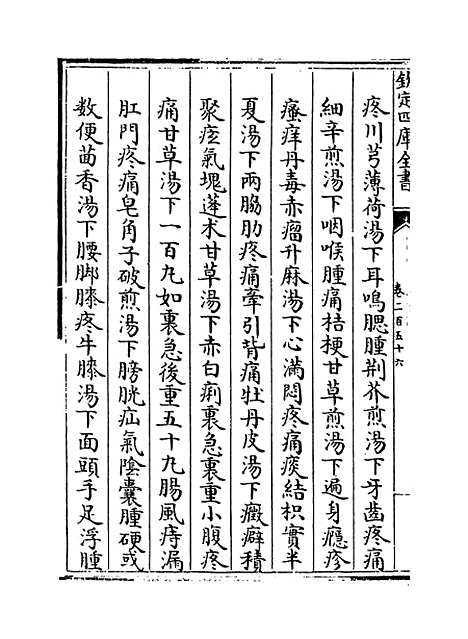 欽定四庫全書
卷二百五十六
疼川芎薄荷湯下耳鳴腮腫荆芥煎湯下牙齒疼痛
細辛煎湯下咽喉腫痛桔梗甘草煎湯下遍身癮疹
瘙痒丹毒赤瘤升麻湯下心滿悶疼痛痰結枳實半
夏湯下兩脇肋疼痛牽引背痛牡丹皮湯下癥癖積
聚痃氣塊蓬术甘草湯下赤白痢裏急裏重小腹疼
痛甘草湯下一百九如裏急後重五十九腸風痔漏
肛門疼痛皂角子破煎湯下膀胱疝氣陰囊腫硬或
数便茴香湯下腰脚膝疼牛膝湯下面頭手足浮腫